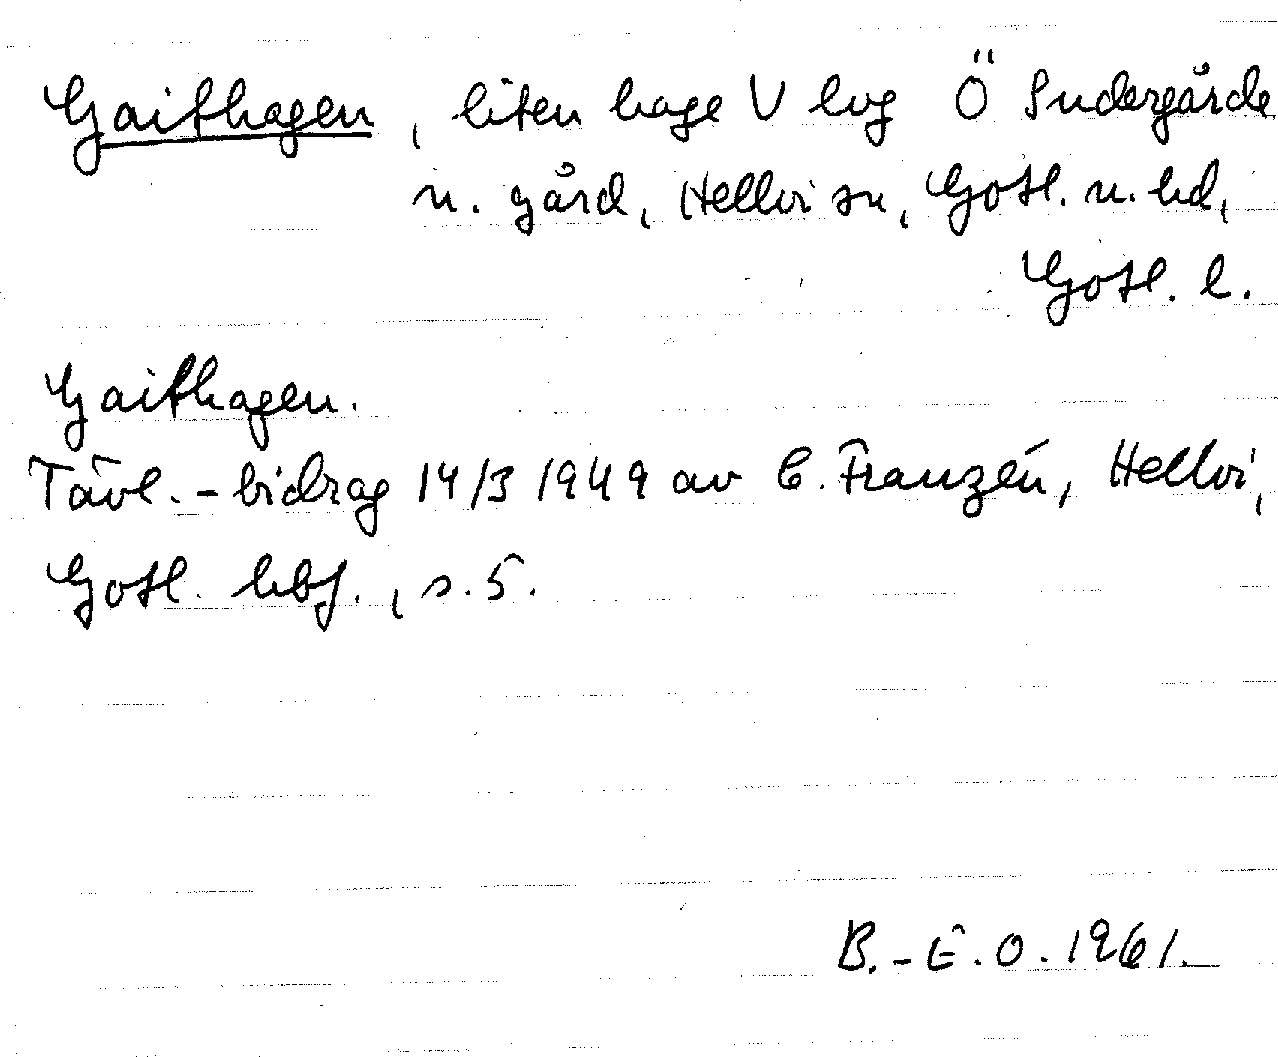 Gaithagen, liten hage V log Ö Sudergårde
n. gård, Hellvi sn, Gotl. n. hd,
Gotl. l.
Gaithagen.
Tävl.-bidrag 14/3 1949 av C. Franzén, Hellvi,
Gotl. hbf., s. 5.
B.-E. O. 1961.